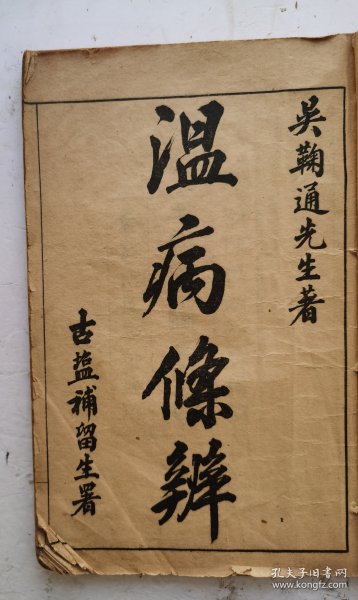 吳鞠通先生著
温病條辨
古盐補留生署
孔夫子旧书网
www.kongfz.com